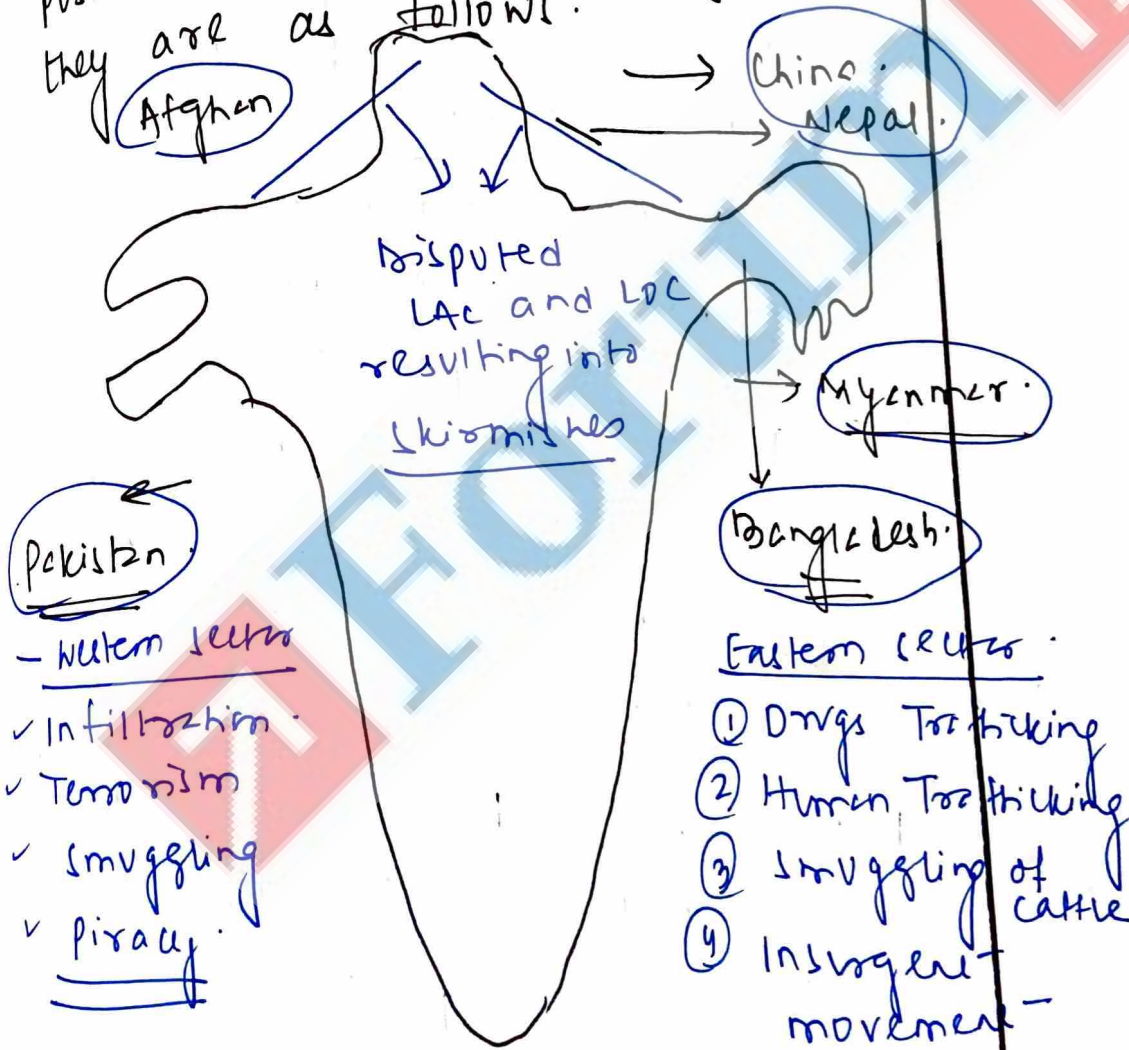 they are as follows.
Afghan
China.
Nepal.
Disputed
LAC and LOC
resulting into
skirmishes
Myanmar.
Pakistan.
Bangladesh.
- Western sector
✓ Infiltration.
✓ Terrorism
✓ smuggling
✓ piracy.
Eastern sector.
① Drugs Trafficking
② Human Trafficking
③ smuggling of
cattle
④ Insurgent
movement
Forum